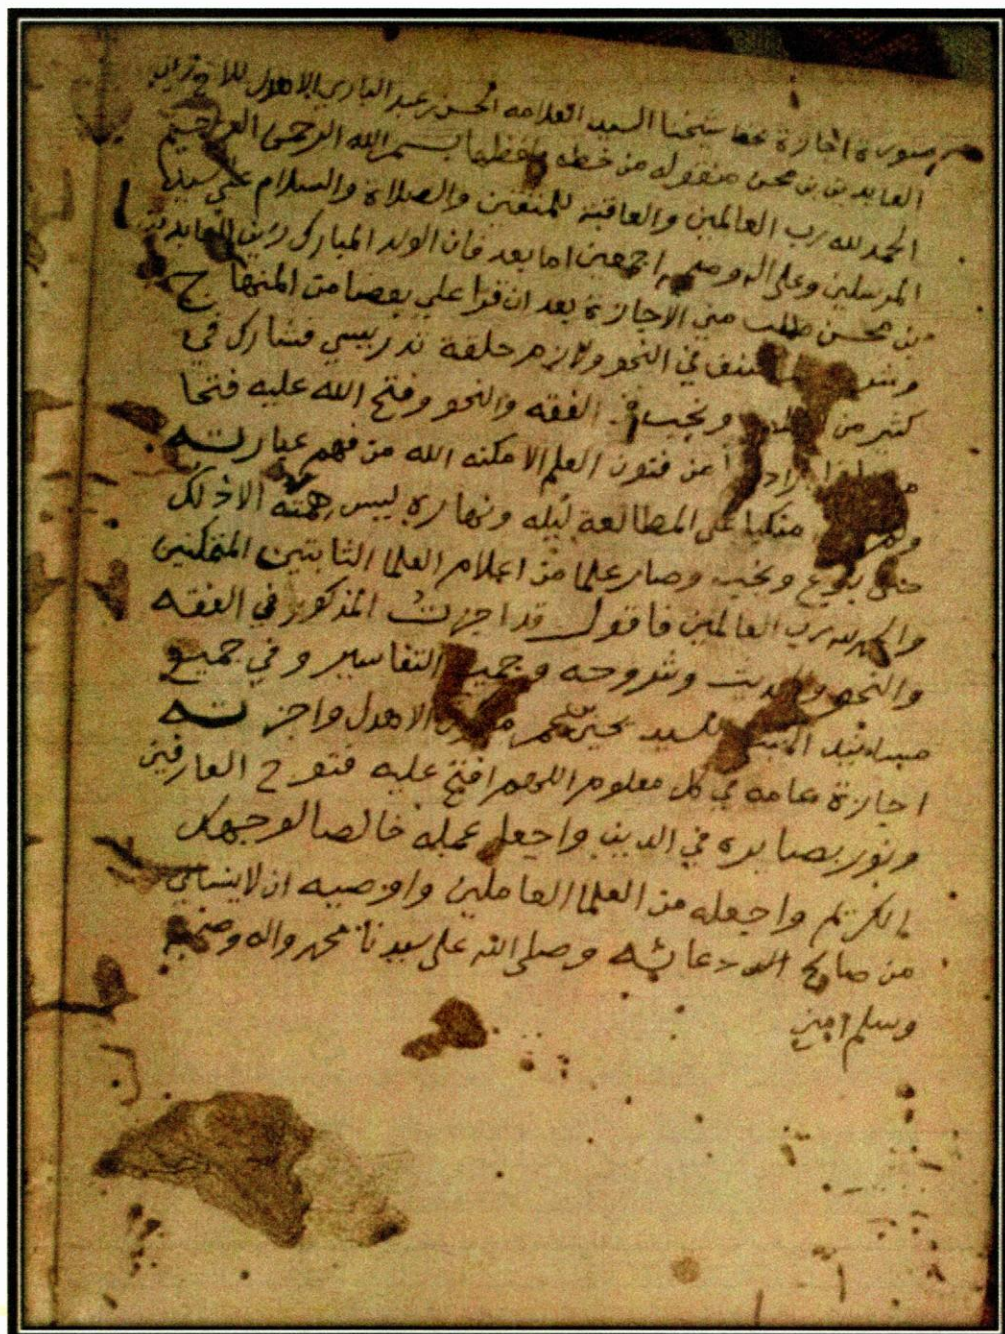 صورة اجازة بخط شيخنا السيد العلامه الحسن بن عبد الباري الاهدل للاخ زين
العابدين بن محسن منقوله من خطه ولفظها بسم الله الرحمن الرحيم
الحمد لله رب العالمين والعاقبة للمتقين والصلاة والسلام على سيد
المرسلين وعلى اله وصحبه اجمعين اما بعد فان الولد المبارك زين العابدين
بن محسن طلب مني الاجازة بعد ان قرا علي بعضا من المنهاج
في النحو ولازم حلقة تدريسي فشارك في
كثير من ونجب في الفقه والنحو وفتح الله عليه فتحا
من فنون العلم الا مكنه الله من فهم عبارته
متكيا على المطالعة ليله ونهاره ليس همته الا ذلك
حتى ونجب وصار علما من اعلام العلما الثابتين المتمكنين
والحمد لله رب العالمين فاقول قد اجزت المذكور في الفقه
والنحو والحديث وشروحه وجميع التفاسير وفي جميع
للسيد يحيى بن عمر مقبول الاهدل واجزته
اجازة عامه في كل معلوم اللهم افتح عليه فتوح العارفين
ونور بصايره في الدين واجعل عمله خالصا لوجهك
الكريم واجعله من العلما العاملين واوصيه ان لا ينساني
من صالح دعائه وصلى الله على سيدنا محمد واله وصحبه
وسلم امين